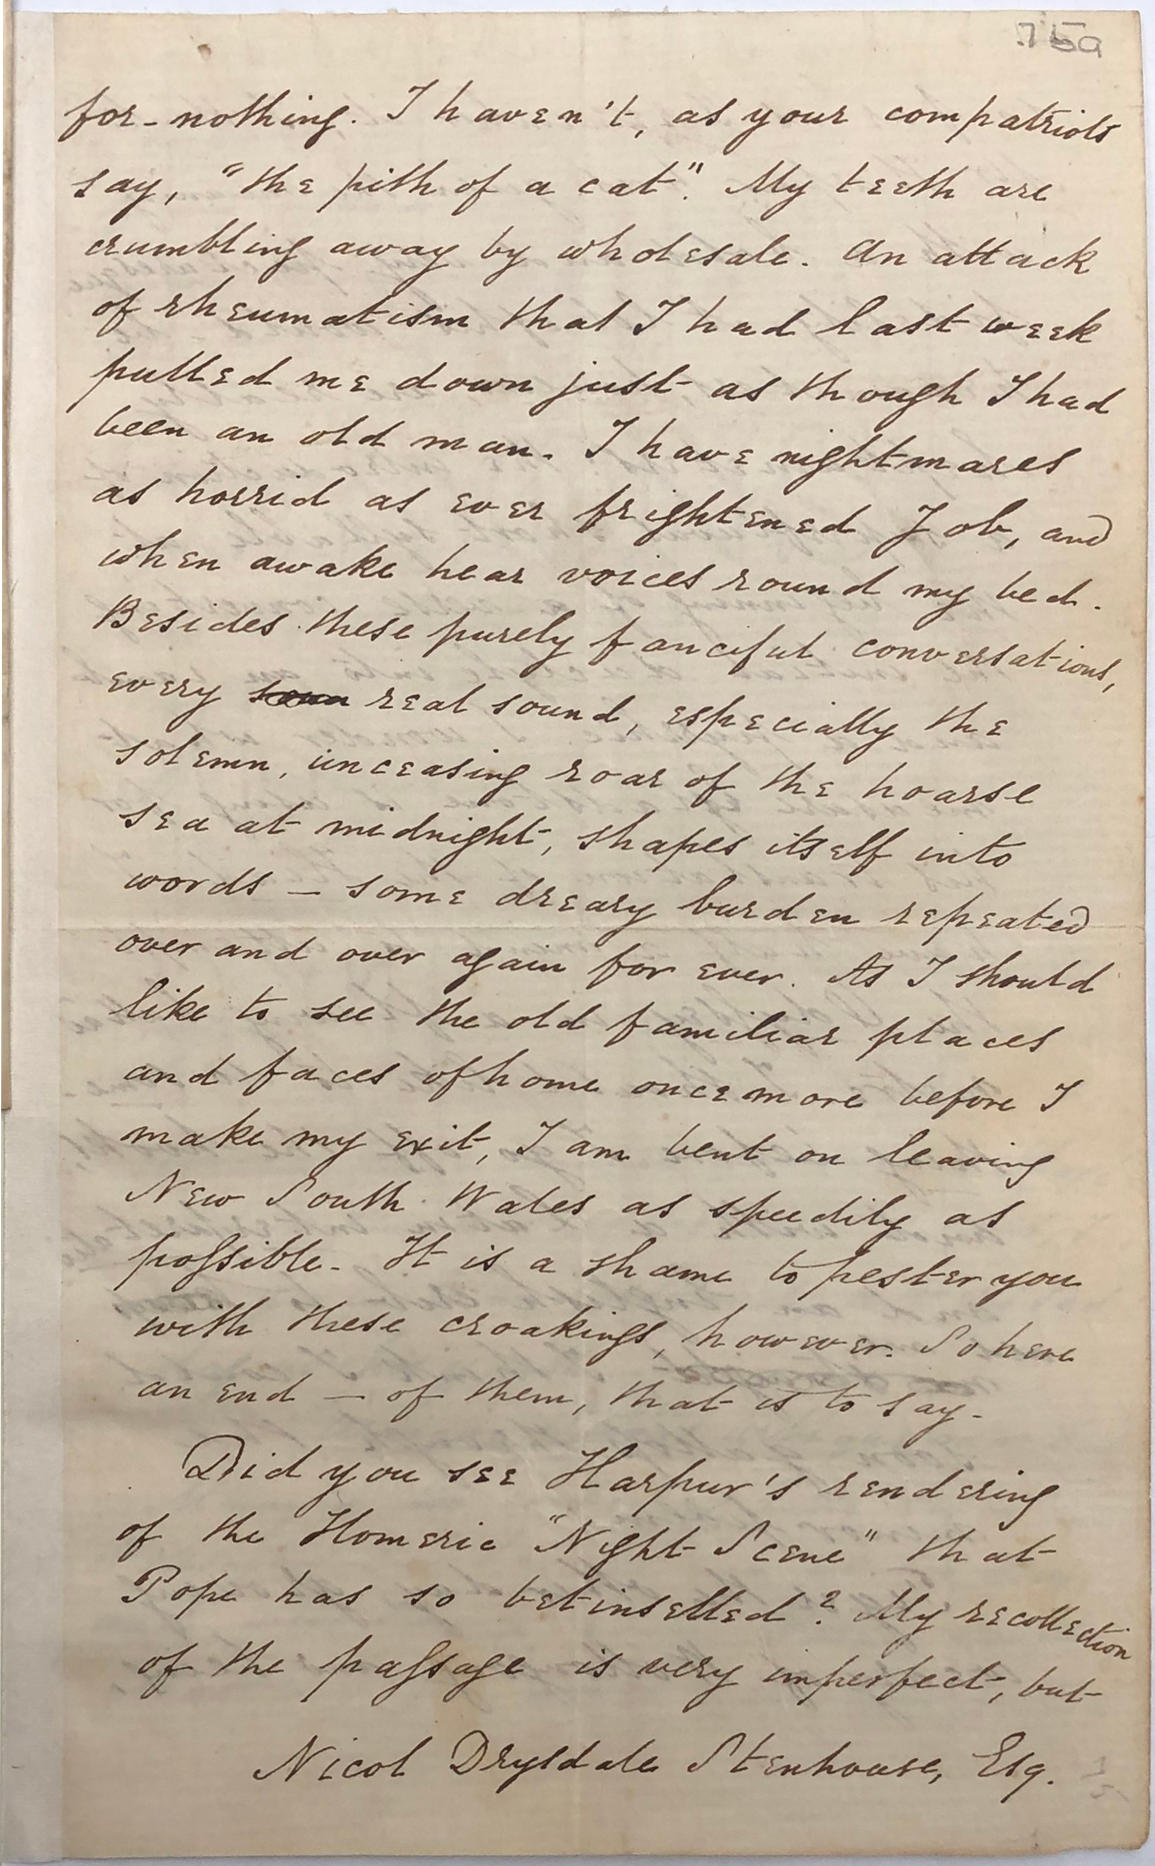 75a
for-nothing. I haven't, as your compatriots
say, "the pith of a cat". My teeth are
crumbling away by wholesale. An attack
of rheumatism that I had last week
pulled me down just as though I had
been an old man. I have nightmares
as horrid as ever frightened Job, and
when awake hear voices round my bed.
Besides these purely fanciful conversations,
every real sound, especially the
solemn, unceasing roar of the hoarse
sea at midnight, shapes itself into
words – some dreary burden repeated
over and over again for ever. As I should
like to see the old familiar places
and faces of home once more before I
make my exit, I am bent on leaving
New South Wales as speedily as
possible. It is a shame to pester you
with these croakings, however. So here
an end – of them, that is to say.
Did you see Harpur's rendering
of the Homeric "Night Scene" that
Pope has so betinselled? My recollection
of the passage is very imperfect, but
Nicol Drysdale Stenhouse, Esq.